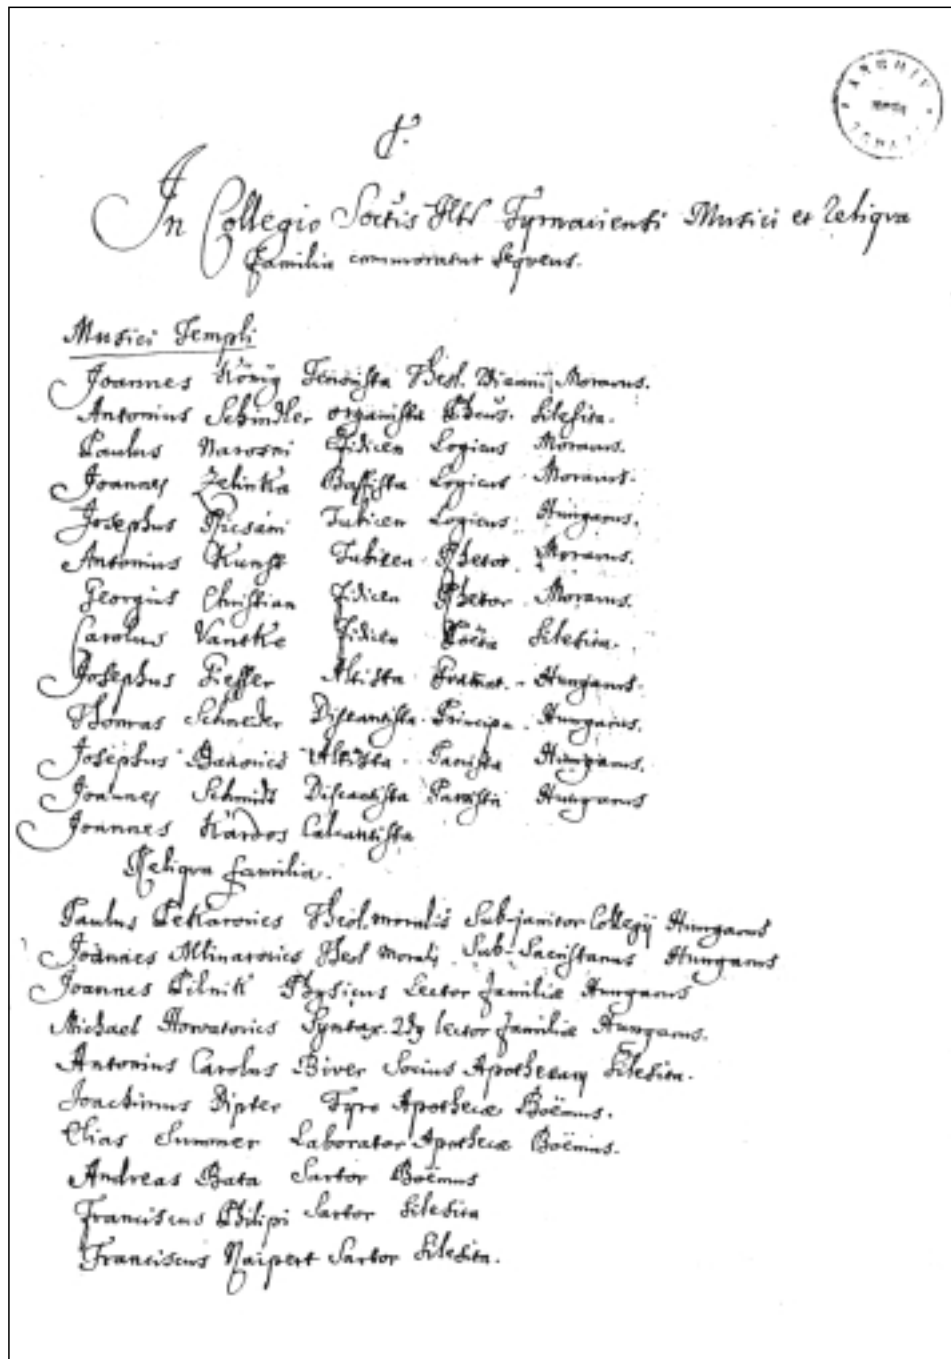 In Collegio Soctis Tyrnaviensi Musici et Reliqva
Familia commoratur seqvens.
Musici Templi
Joannes König Tenorista Theol. Biennij Moravus.
Antonius Schindler organista Silesita.
Paulus Fidicen Logicus Moravus.
Joannes Zelinka Bassista Logicus Moravus.
Josephus Tubicen Logicus Hungarus.
Antonius Kunst Tubicen Rhetor Moravus.
Georgius Christian Fidicen Rhetor Moravus.
Carolus Fidicen Poëta Silesita.
Josephus Altista Hungarus.
Thomas Schneder Discantista Principis. Hungarus.
Josephus Altista Parvista Hungarus.
Joannes Schmidt Discantista Parvista Hungarus
Joannes Kardos Calcantista
Reliqva familia.
Paulus Pekarovics Theol. moralis Sub-janitor Collegij Hungarus
Joannes Mlinarovics Theol moralis Sub-Sacristanus Hungarus
Joannes Pilnik Physicus Lector familiæ Hungarus
Michael Horvatovics Syntax. lector familiæ Hungarus.
Antonius Carolus Biver Socius Apothecary Silesita.
Joachimus Dipter Tyro Apothecæ Boëmus.
Elias Summer Laborator Apothecæ Boëmus.
Andreas Bata Sartor Boëmus
Franciscus Philipi Sartor Silesita
Franciscus Naipert Sartor Silesita.